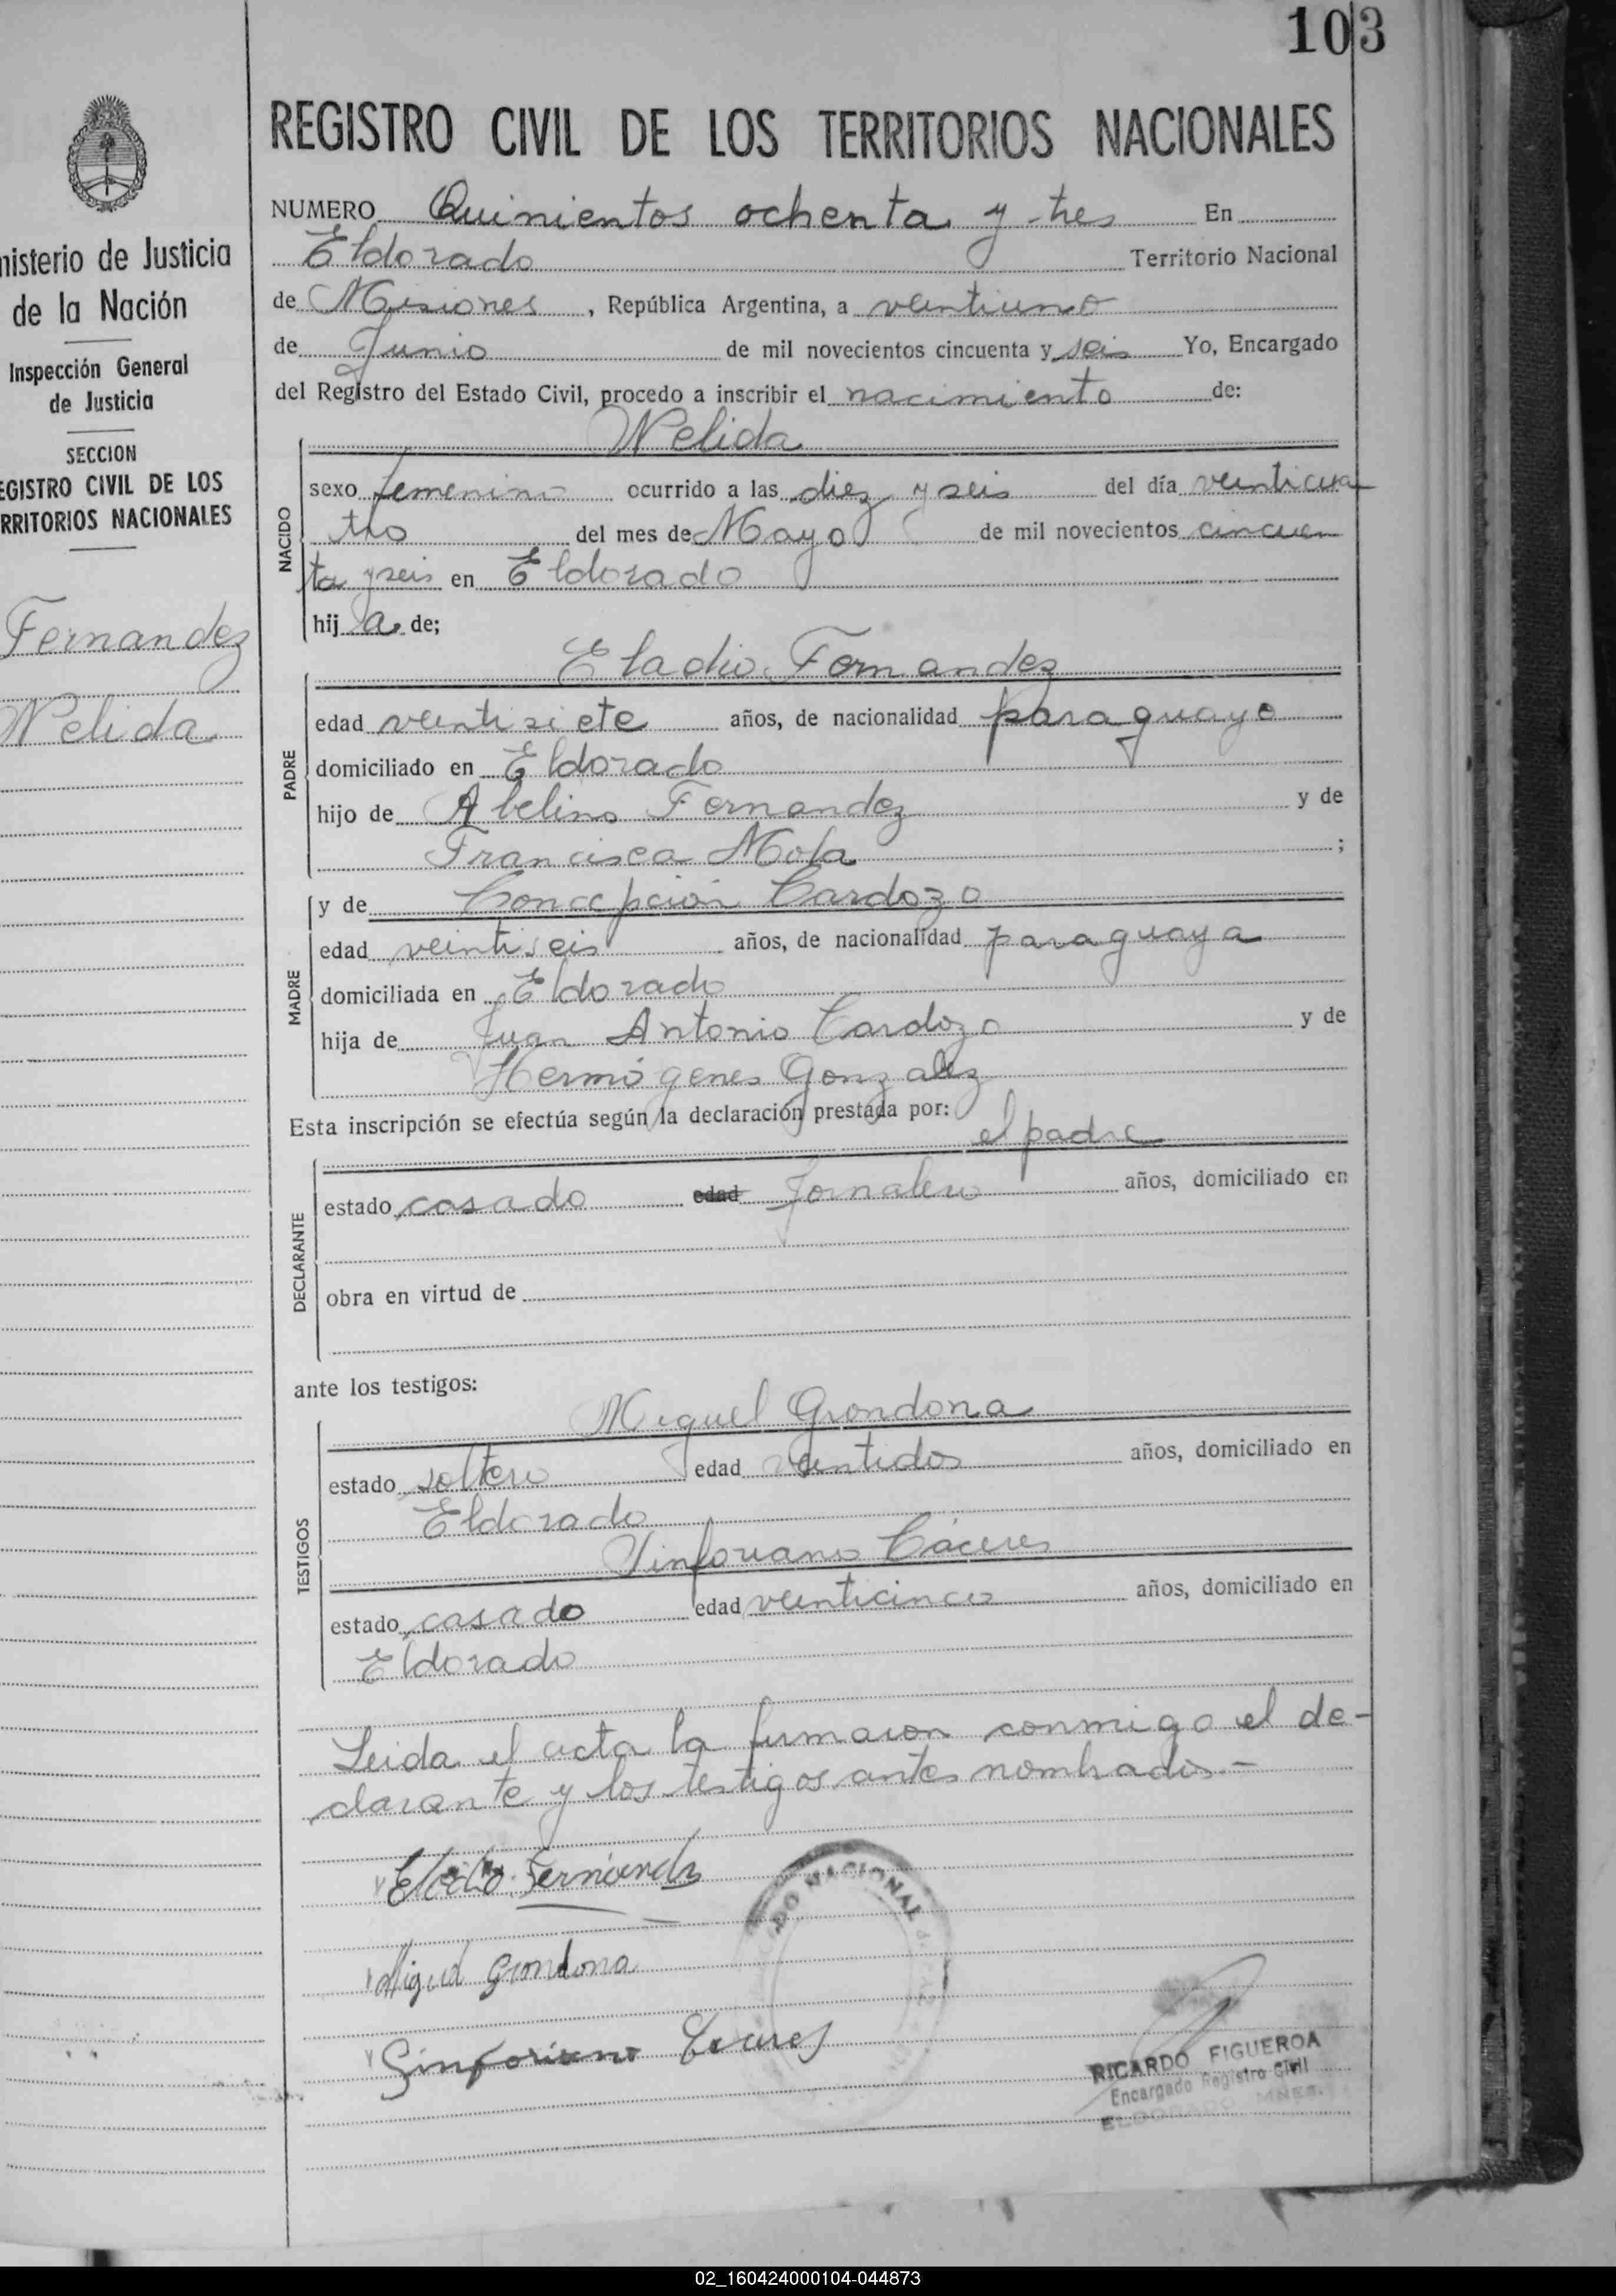 103
nisterio de Justicia
de la Nación
Inspección General
de Justicia
SECCION
EGISTRO CIVIL DE LOS
RRITORIOS NACIONALES
Fernandez
Nelida
REGISTRO CIVIL DE LOS TERRITORIOS NACIONALES
NUMERO Quinientos ochenta y tres En
Eldorado Territorio Nacional
de Misiones, República Argentina, a veintiuno
de Junio de mil novecientos cincuenta y seis Yo, Encargado
del Registro del Estado Civil, procedo a inscribir el nacimiento de:
Nelida
NACIDO
sexo femenino ocurrido a las diez y seis del día veinticua
tro del mes de Mayo de mil novecientos cincuen
ta y seis en Eldorado
hija de;
Eladio Fernandez
PADRE
edad veintisiete años, de nacionalidad paraguayo
domiciliado en Eldorado
hijo de Abelino Fernandez y de
Francisca Mola ;
y de Concepción Cardozo
MADRE
edad veintiseis años, de nacionalidad paraguaya
domiciliada en Eldorado
hija de Juan Antonio Cardozo y de
Hermógenes Gonzalez
Esta inscripción se efectúa según la declaración prestada por:
el padre
DECLARANTE
estado casado edad Jornalero años, domiciliado en
obra en virtud de
ante los testigos:
Miguel Grondona
TESTIGOS
estado soltero edad veintidos años, domiciliado en
Eldorado
Sinforiano Cáceres
estado casado edad veinticinco años, domiciliado en
Eldorado
Leida el acta la firmaron conmigo el de-
clarante y los testigos antes nombrados.-
Eladio Fernandez
Miguel Grondona
Sinforiano Caceres
DO NACIONAL
RICARDO FIGUEROA
Encargado Registro Civil
ELDORADO MNES.
02_160424000104-044873